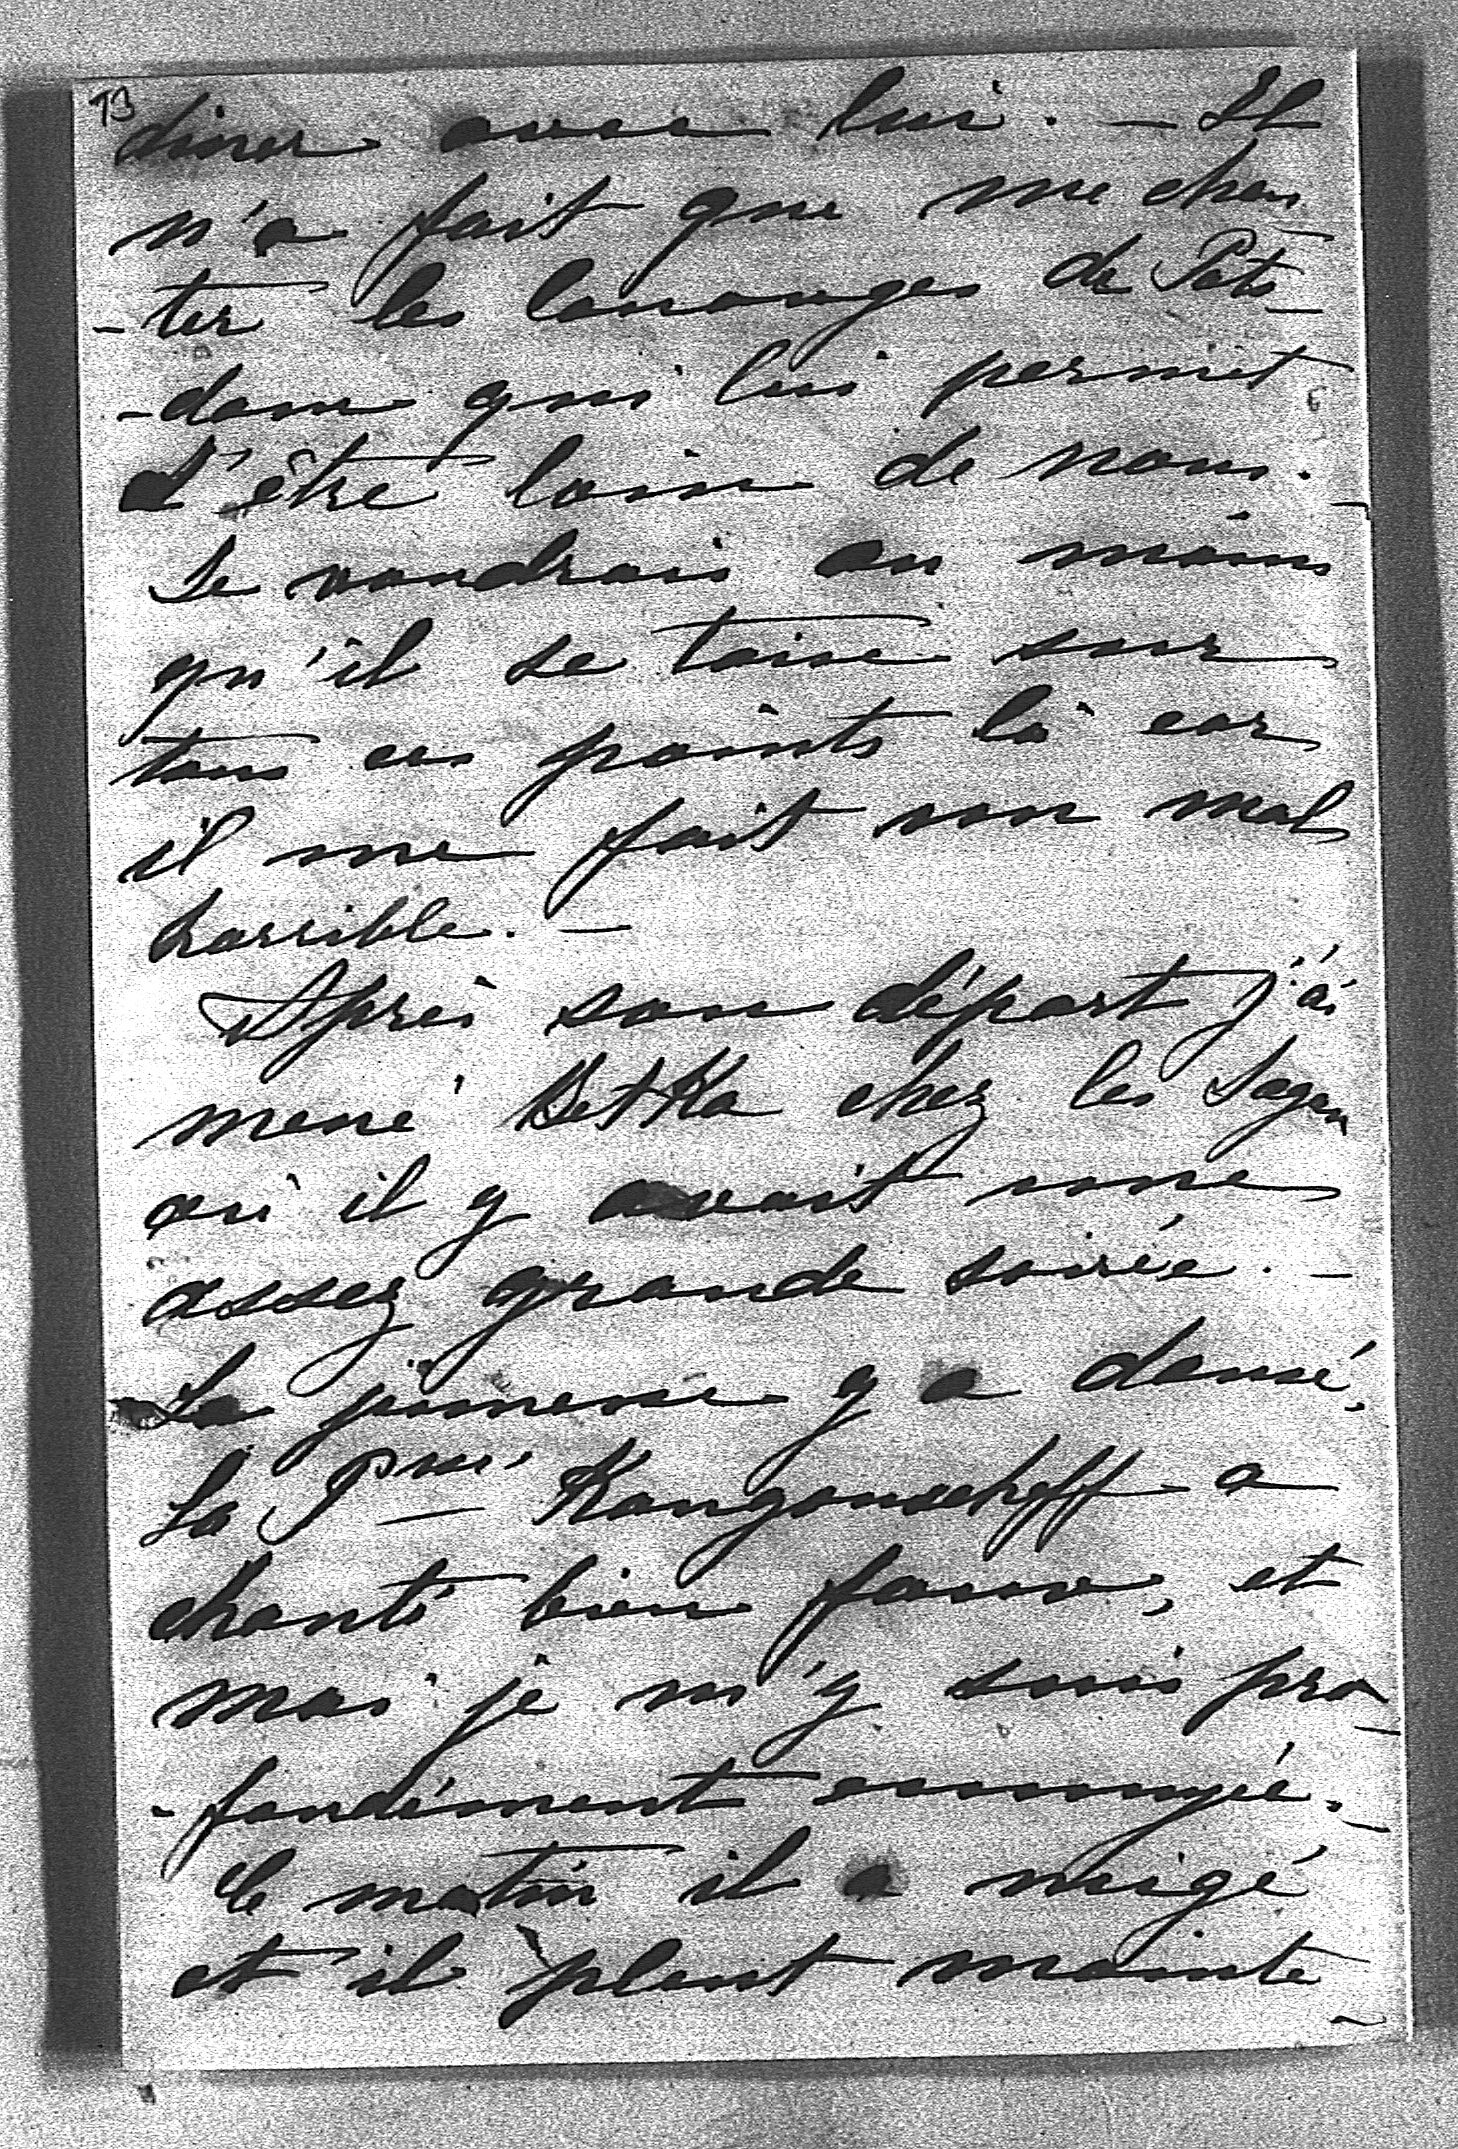 73
diner avec lui. — Il
n'a fait que me chan
-ter les louanges de Pots-
-dam qui lui permet
d'être loin de nous. —
Je voudrais au moins
qu'il se taise sur
tous ces points là car
il me fait un mal
horrible. —
Après son départ j'ai
mené Betka chez les Sagan
où il y avait une
assez grande soirée. —
La jeunesse y a dansé,
La Psse
chanté bien faux, et
moi je m'y suis pro-
-fondément ennuyée. —
Ce matin il a neigé
et il pleut mainte-